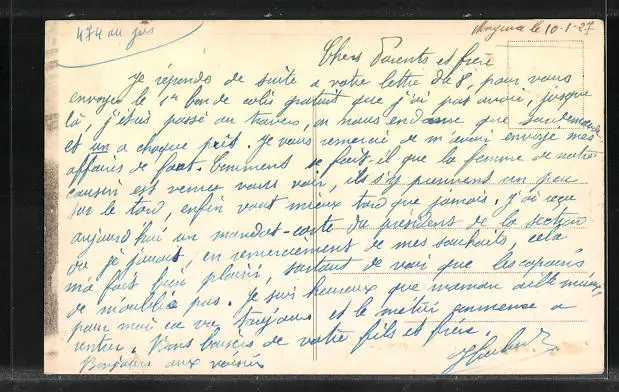 474 au jus
Mayence le 10-1-27
Chers Parents et frère
Je réponds de suite a votre lettre du 8, pour vous
envoyer le 1er bon de colis gratuit que j'ai pas avoir, jusque
là, j'étais passé au travers, on nous en donne que sur demande
et un a chaque prêt. Je vous remercie de m'avoir envoyé mes
affaires de foot. Comment se fait-il que la femme de notre
cousin est venue vous voir, ils s'y prennent un peu
sur le tard, enfin vaut mieux tard que jamais, j'ai reçu
aujourd'hui un mandat-carte du président de la section
ou je jouais, en remerciement de mes souhaits, cela
m'a fait bien plaisir, surtout de voir que les copains
ne m'oublie pas. Je suis heureux que maman aille mieux,
pour moi ca va toujours et le métier commence a
rentrer. Bons baisers de votre fils et frère.
Bonjours aux voisins